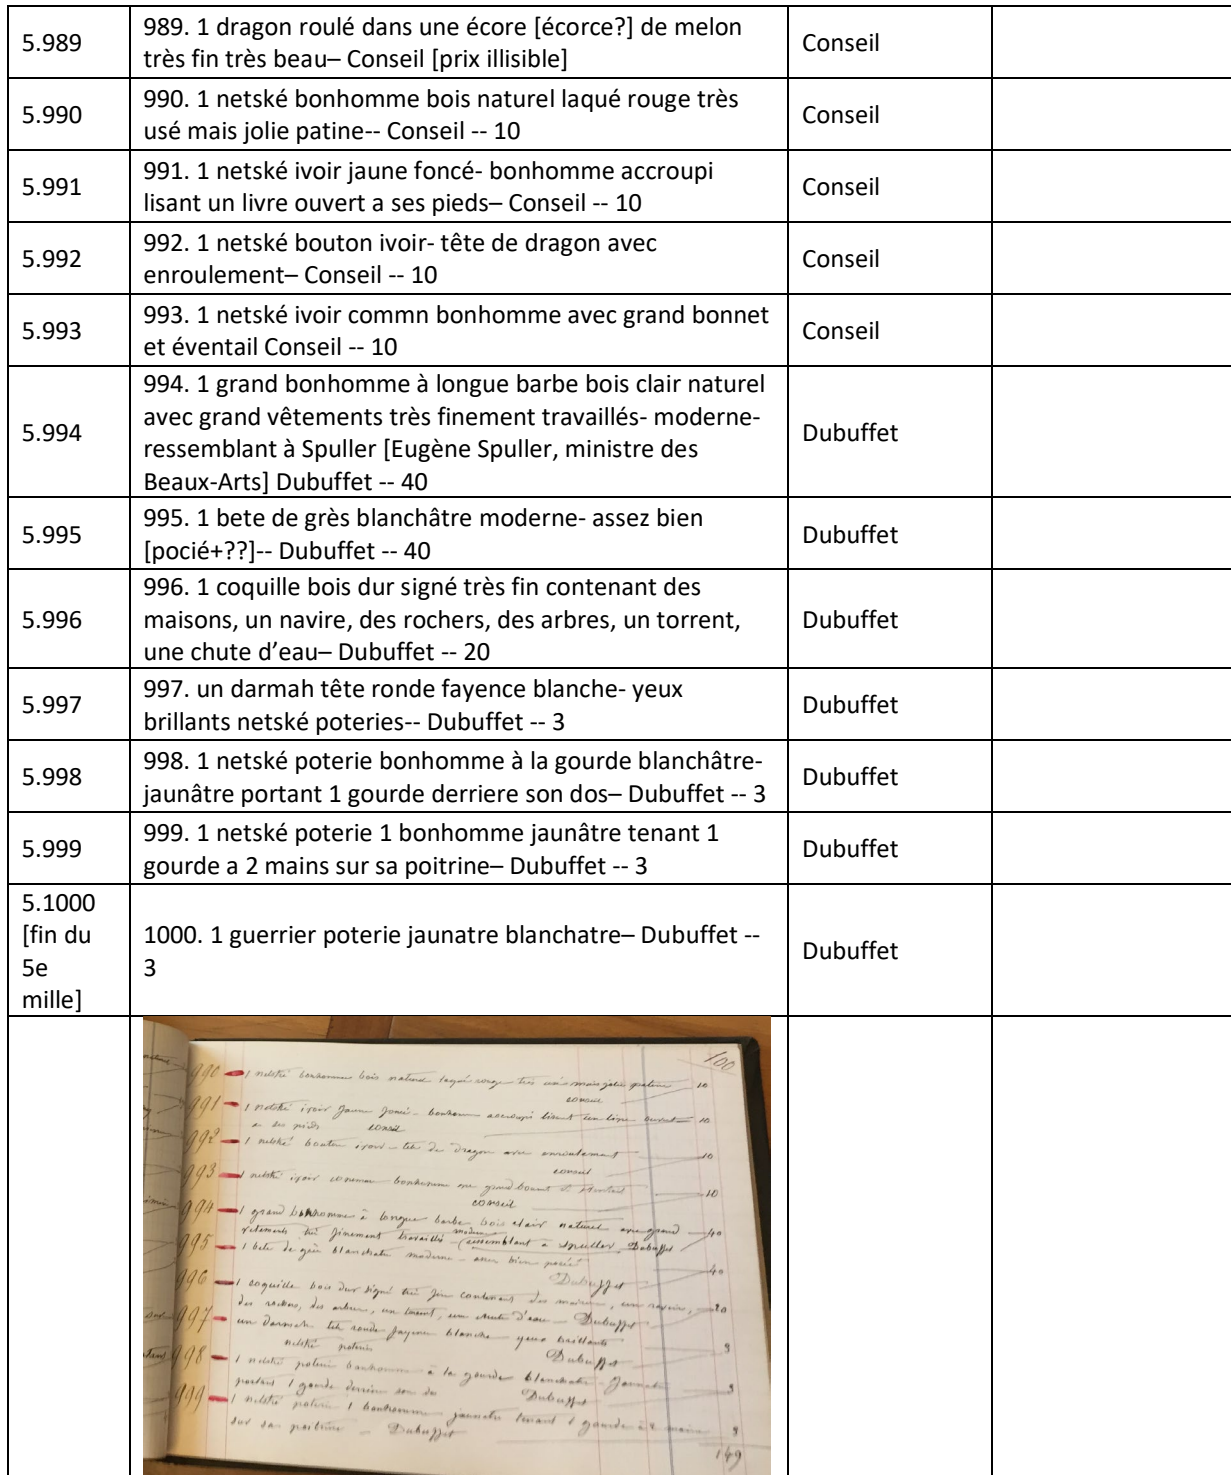 5.989
989. 1 dragon roulé dans une écore [écorce?] de melon
très fin très beau– Conseil [prix illisible]
Conseil
5.990
990. 1 netské bonhomme bois naturel laqué rouge très
usé mais jolie patine-- Conseil -- 10
Conseil
5.991
991. 1 netské ivoir jaune foncé- bonhomme accroupi
lisant un livre ouvert a ses pieds– Conseil -- 10
Conseil
5.992
992. 1 netské bouton ivoir- tête de dragon avec
enroulement– Conseil -- 10
Conseil
5.993
993. 1 netské ivoir commn bonhomme avec grand bonnet
et éventail Conseil -- 10
Conseil
5.994
994. 1 grand bonhomme à longue barbe bois clair naturel
avec grand vêtements très finement travaillés- moderne-
ressemblant à Spuller [Eugène Spuller, ministre des
Beaux-Arts] Dubuffet -- 40
Dubuffet
5.995
995. 1 bete de grès blanchâtre moderne- assez bien
[pocié+??]-- Dubuffet -- 40
Dubuffet
5.996
996. 1 coquille bois dur signé très fin contenant des
maisons, un navire, des rochers, des arbres, un torrent,
une chute d’eau– Dubuffet -- 20
Dubuffet
5.997
997. un darmah tête ronde fayence blanche- yeux
brillants netské poteries-- Dubuffet -- 3
Dubuffet
5.998
998. 1 netské poterie bonhomme à la gourde blanchâtre-
jaunâtre portant 1 gourde derriere son dos– Dubuffet -- 3
Dubuffet
5.999
999. 1 netské poterie 1 bonhomme jaunâtre tenant 1
gourde a 2 mains sur sa poitrine– Dubuffet -- 3
Dubuffet
5.1000
[fin du
5e
mille]
1000. 1 guerrier poterie jaunatre blanchatre– Dubuffet --
3
Dubuffet
100
990 1 netské bonhomme bois naturel laqué rouge très usé mais jolie patine 10
conseil
991 1 netské ivoir jaune foncé - bonhomme accroupi lisant un livre ouvert 10
a ses pieds conseil
992 1 netské bouton ivoir - tête de dragon avec enroulement 10
conseil
993 1 netské ivoir commun bonhomme avec grand bonnet et éventail 10
conseil
994 1 grand bonhomme à longue barbe bois clair naturel avec grand 40
vêtements très finement travaillés - moderne (ressemblant a Spuller Dubuffet
995 1 bete de grès blanchatre moderne - assez bien 40
Dubuffet
996 1 coquille bois dur signé très fin contenant des maisons, un navire, 20
des rochers, des arbres, un torrent, une chute d'eau - Dubuffet
997 un darmah tête ronde fayence blanche - yeux brillants 3
netské poteries Dubuffet
998 1 netské poterie bonhomme à la gourde blanchatre - jaunatre 3
portant 1 gourde derriere son dos Dubuffet
999 1 netské poterie 1 bonhomme jaunatre tenant 1 gourde à 2 mains 3
sur sa poitrine - Dubuffet
149